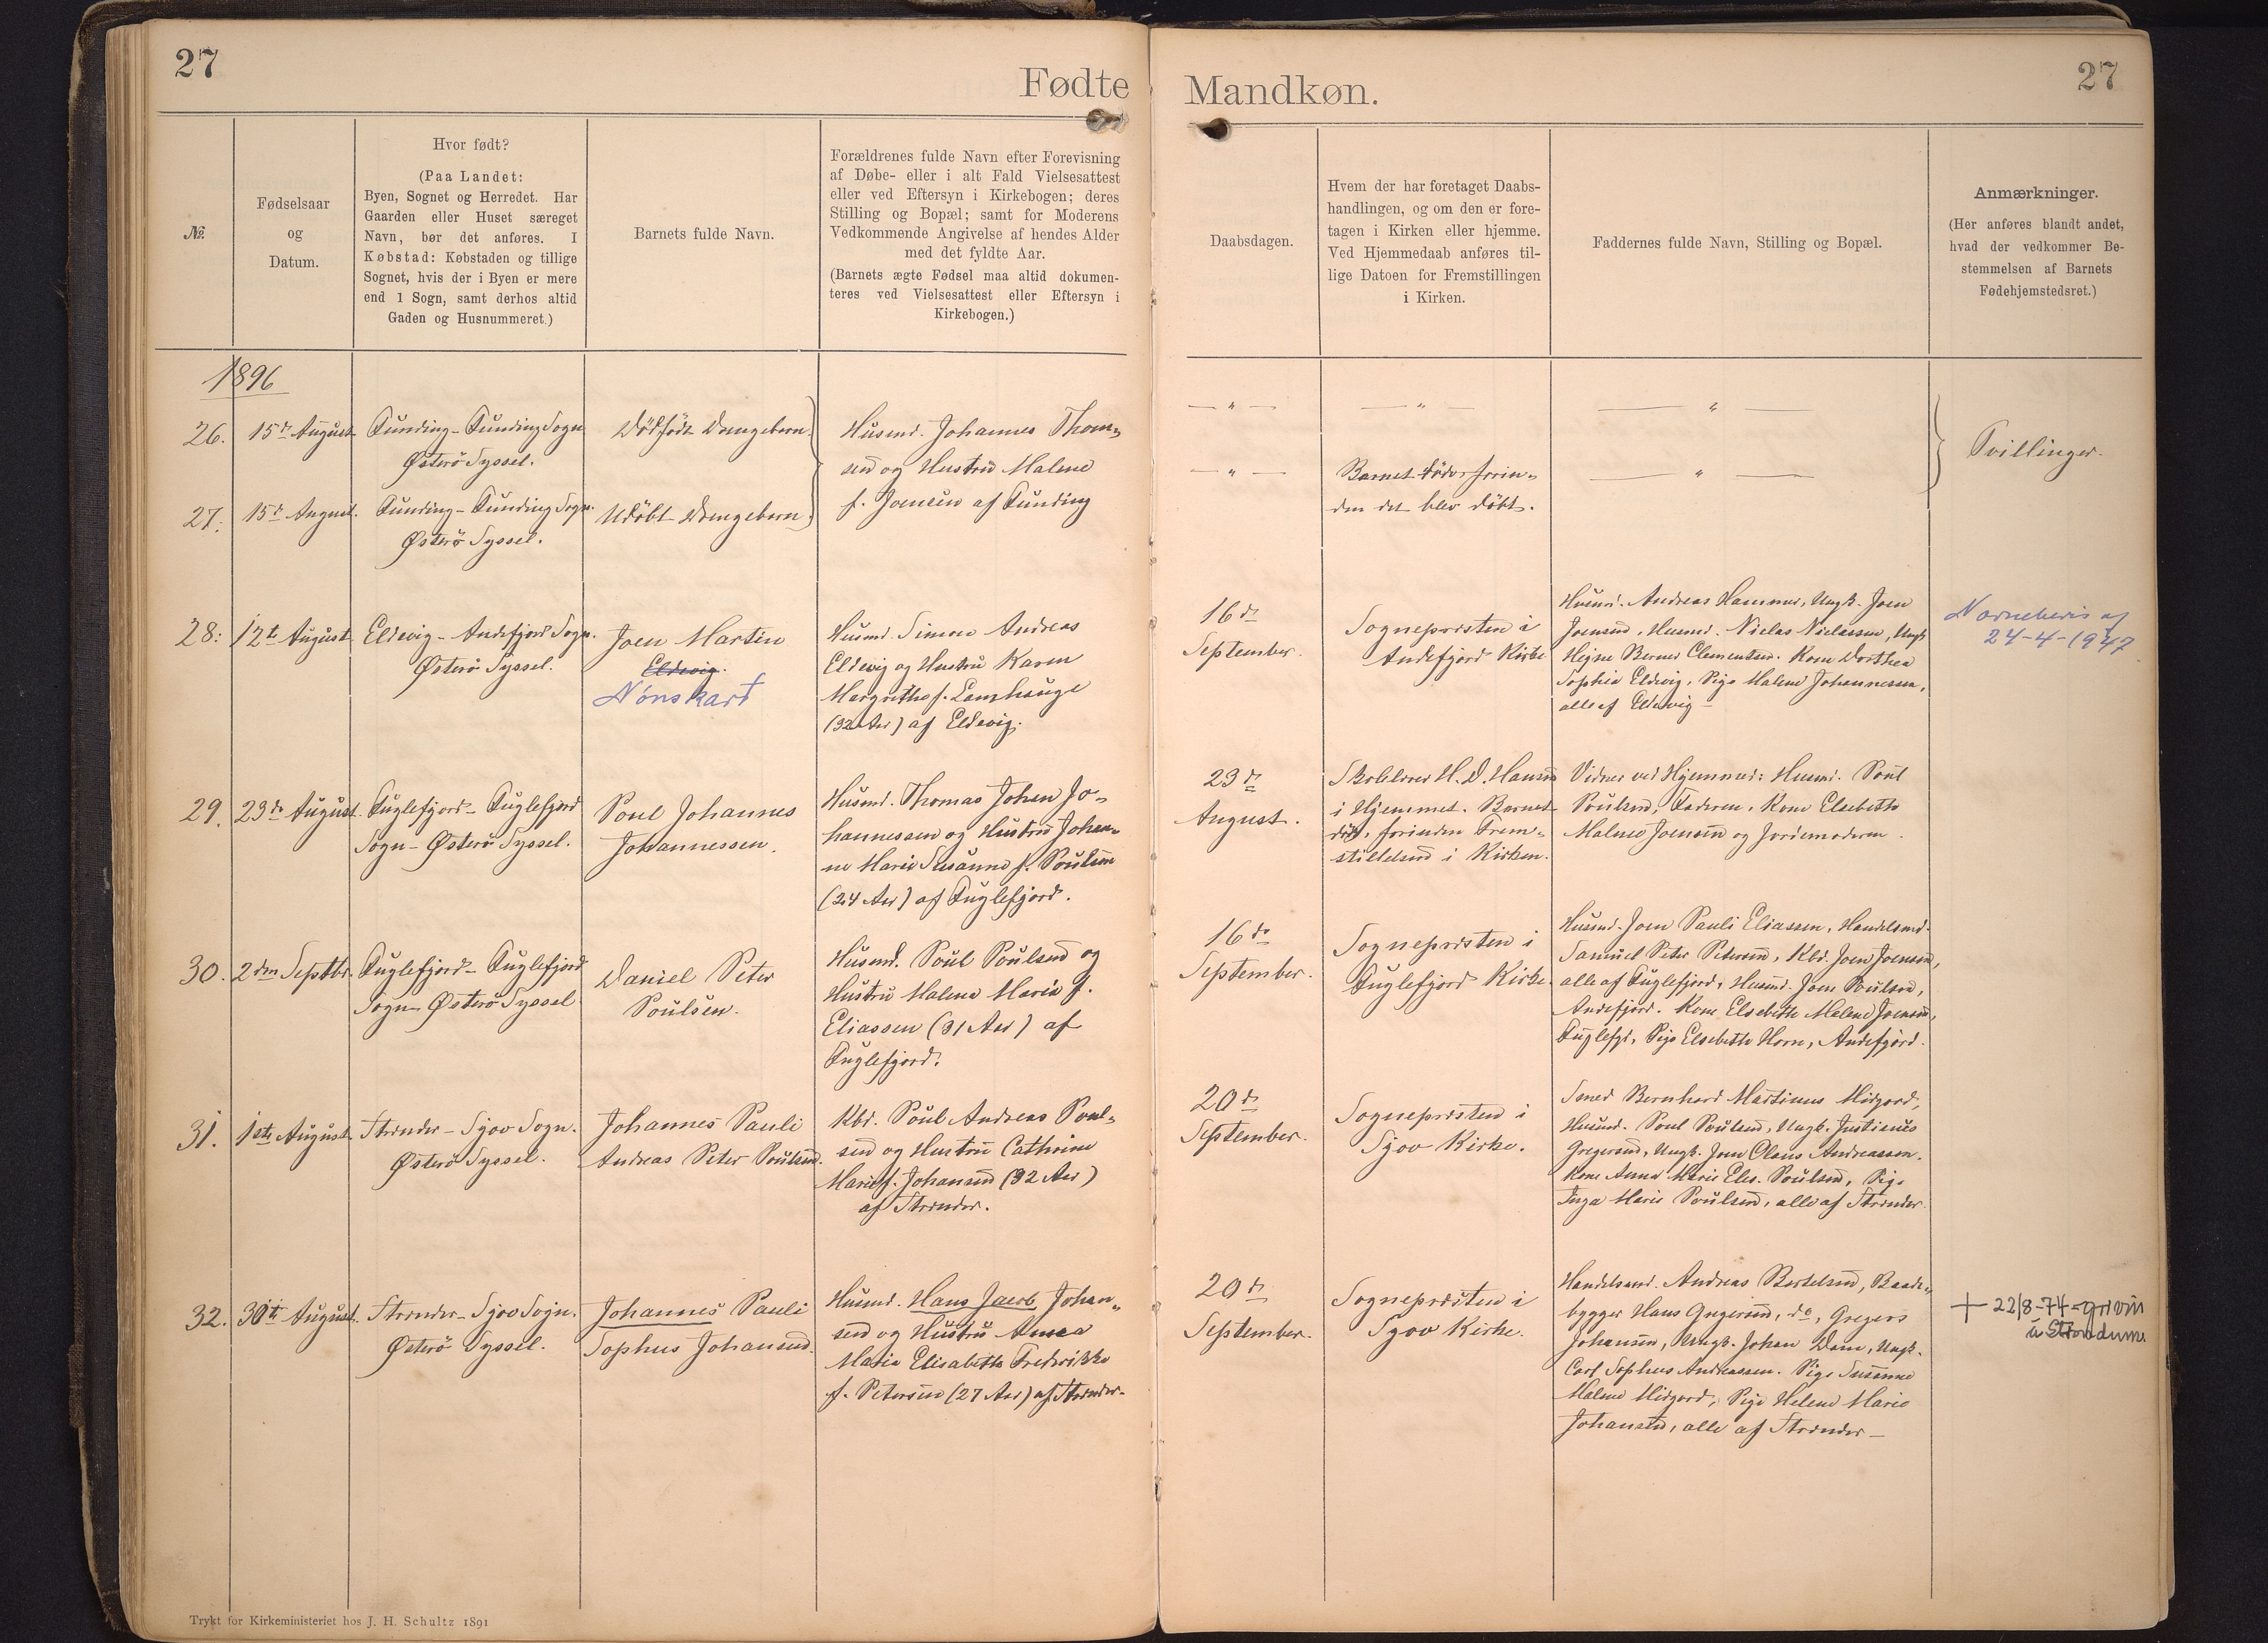 27
Fødte
№.
Fødselsaar
og
Datum.
Hvor født?
(Paa Landet:
Byen, Sognet og Herredet. Har
Gaarden eller Huset særeget
Navn, bør det anføres. I
Købstad: Købstaden og tillige
Sognet, hvis der i Byen er mere
end 1 Sogn, samt derhos altid
Gaden og Husnummeret.)
Barnets fulde Navn.
Forældrenes fulde Navn efter Forevisning
af Døbe- eller i alt Fald Vielsesattest
eller ved Eftersyn i Kirkebogen; deres
Stilling og Bopæl; samt for Moderens
Vedkommende Angivelse af hendes Alder
med det fyldte Aar.
(Barnets ægte Fødsel maa altid dokumen-
teres ved Vielsesattest eller Eftersyn i
Kirkebogen.)
1896
26.
15de August
Funding - Funding Sogn
Østerö Syssel.
Dödfödt Drengebarn
Husmd. Johannes Thom-
sen og Hustru Malene
f. Joensen af Funding
27.
15de August.
Funding - Funding Sogn.
Østerö Syssel.
Udöbt Drengebarn
28.
12te August
Eldevig - Andefjord Sogn.
Østerö Syssel.
Joen Martin
Eldevig.
Nónskarð
Husmd. Simon Andreas
Eldevig og Hustru Karen
Margrethe f. Lamhauge
(32 Aar) af Eldevig.
29.
23de August.
Fuglefjord - Fuglefjord
Sogn - Østerö Syssel.
Poul Johannes
Johannessen.
Husmd. Thomas Johan Jo-
hannessen og Hustru Johan-
ne Marie Susanne f. Poulsen
(24 Aar) af Fuglefjord.
30.
2den Septbr.
Fuglefjord - Fuglefjord
Sogn - Østerö Syssel
Daniel Peter
Poulsen.
Husmd. Poul Poulsen og
Hustru Malene Maria f.
Eliassen (31 Aar) af
Fuglefjord.
31.
1ste August
Strender - Sjov Sogn.
Østerö Syssel.
Johannes Pauli
Andreas Peter Poulsen.
Kbd. Poul Andreas Poul-
sen og Hustru Cathrine
Marie f. Johansen (32 Aar)
af Strender.
32.
30te August.
Strender - Sjov Sogn.
Østerö Syssel.
Johannes Pauli
Sophus Johansen.
Husmd. Hans Jacob Johan-
sen og Hustru Anna
Maria Elisabeth Frederikke
f. Petersen (27 Aar) af Strender.
Trykt for Kirkeministeriet hos J. H. Schultz 1891
Mandkøn.
27
Daabsdagen.
Hvem der har foretaget Daabs-
handlingen, og om den er fore-
tagen i Kirken eller hjemme.
Ved Hjemmedaab anføres til-
lige Datoen for Fremstillingen
i Kirken.
Faddernes fulde Navn, Stilling og Bopæl.
Anmærkninger.
(Her anføres blandt andet,
hvad der vedkommer Be-
stemmelsen af Barnets
Fødehjemstedsret.)
— " —
— " —
— " —
Tvillinger.
— " —
Barnet döde forin-
den det blev döbt.
— " —
16de
September.
Sognepræsten i
Andefjord Kirke
Husmd. Andreas Hammer, Ungk. Joen
Joensen, Husmd. Niclas Niclassen, Ungk.
Hejne Berner Clementsen. Kone Dorthea
Sophie Eldevig, Pige Malene Johannessen,
alle af Eldevig -
Navnebevis af
24-4-1947
23de
August.
Skolelærer H. D. Hansen
i Hjemmet. Barnet
död, forinden Frem-
stillelsen i Kirken.
Vidner ved Hjemmed: Husmd. Poul
Poulsen, Faderen, Kone Elsebeth
Malene Joensen og Jordemoderen.
16de
September.
Sognepræsten i
Fuglefjord Kirke.
Husmd. Joen Pauli Eliassen, Handelsmd.
Samuel Peter Petersen, Kbd. Joen Joensen,
alle af Fuglefjord, Husmd. Joen Poulsen,
Andefjord. Kone Elsebeth Malene Joensen,
Fuglefjd, Pige Elsebeth Horn, Andefjord.
20de
September.
Sognepræsten i
Sjov Kirke.
Smed Bernhard Martinus Midjord,
Husmd. Poul Poulsen, Ungk. Justinus
Gregersen, Ungk. Joen Claus Andreassen.
Kone Anna Marie Elis. Poulsen, Pige
Inga Marie Poulsen, alle af Strender.
20de
September.
Sognepræsten i
Sjov Kirke.
Handelsmd. Andreas Bertelsen, Baade-
bygger Hans Gregersen, do, Gregers
Johansen, Ungk. Johan Dam, Ungk.
Carl Sophus Andreassen. Pige Susanne
Malene Midjord, Pige Helene Marie
Johansen, alle af Strender -
+ 22/8-74 - grivin
á Strondum.